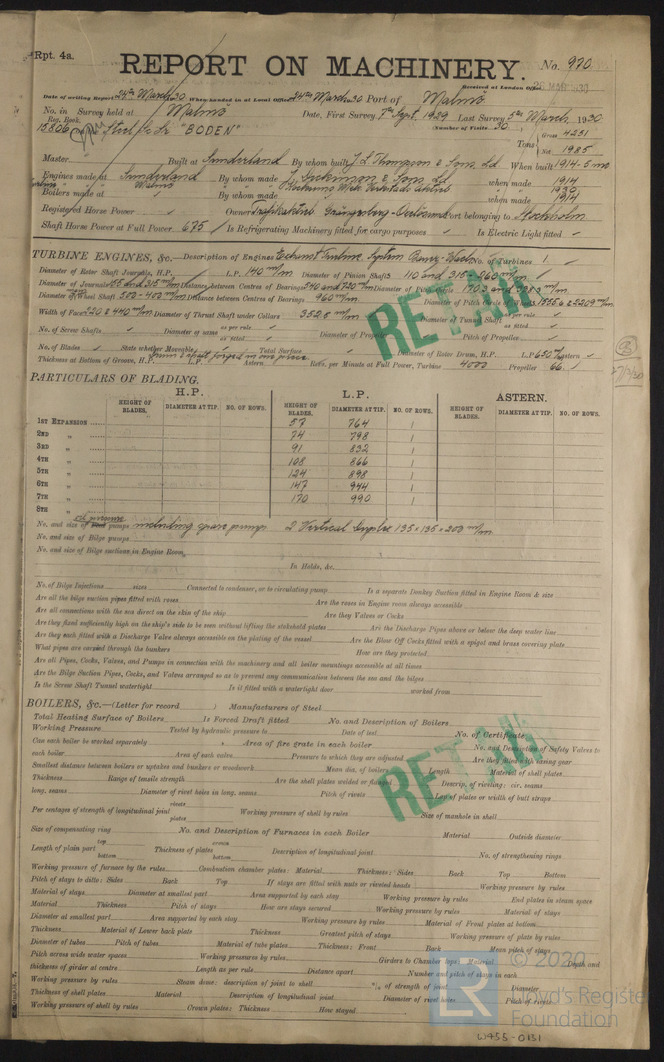 Rpt. 4a.
REPORT ON MACHINERY. No. 970.
Received at London Office
Date of writing Report 24th March 30 When handed in at Local Office 24th March 30 Port of Malmö
No. in Survey held at Malmö Date, First Survey 7th Sept. 1929 Last Survey 5th March 1930
Reg. Book. (Number of Visits 30
15806 on the Steel "BODEN" Tons Gross 4251
Net 1985
Master Built at Sunderland By whom built J. L. Thompson & Sons, Ld. When built 1914-5
Engines made at Sunderland By whom made J. Dickinson & Sons, Ld. when made 1914
Malmö 1930
Boilers made at By whom made when made 1914
Registered Horse Power Owners Trafikaktieb. Grängesberg-Oxelösund Port belonging to Stockholm
Shaft Horse Power at Full Power 675 Is Refrigerating Machinery fitted for cargo purposes Is Electric Light fitted
TURBINE ENGINES, &c.—Description of Engines Exhaust Turbine, System Bauer-Wach No. of Turbines 1.
Diameter of Rotor Shaft Journals, H.P. L.P. 140 m/m Diameter of Pinion Shafts 110 and 315-260 m/m
Diameter of Journals 85 and 315 m/m Distance between Centres of Bearings 540 and 720 m/m Diameter of Pitch Circle
Diameter of Wheel Shaft Distance between Centres of Bearings 960 m/m Diameter of Pitch Circle of Wheel 1555.6 & 2209 m/m
Width of Face 220 & 440 m/m Diameter of Thrust Shaft under Collars 352.5 m/m Diameter of Tunnel Shaft as per rule
as fitted
No. of Screw Shafts Diameter of same as per rule
as fitted Diameter of Propeller Pitch of Propeller
No. of Blades State whether Moveable Total Surface Diameter of Rotor Drum, H.P. L.P. 650 m/m Astern
Thickness at Bottom of Groove, H.P. Drum & shaft forged in one piece L.P. Astern Revs. per Minute at Full Power, Turbine 4000 Propeller 66.
RETAIN
PARTICULARS OF BLADING.
H.P. L.P. ASTERN.
HEIGHT OF BLADES. DIAMETER AT TIP. NO. OF ROWS. HEIGHT OF BLADES. DIAMETER AT TIP. NO. OF ROWS. HEIGHT OF BLADES. DIAMETER AT TIP. NO. OF ROWS.
1ST EXPANSION 57 764 1
2ND " 74 798 1
3RD " 91 832 1
4TH " 108 866 1
5TH " 124 898 1
6TH " 147 944 1
7TH " 170 990 1
8TH "
oil pressure
No. and size of Feed pumps including spare pumps 2 Vertical Duplex 135 × 135 × 200 m/m
No. and size of Bilge pumps
No. and size of Bilge suctions in Engine Room
In Holds, &c.
No. of Bilge Injections sizes Connected to condenser, or to circulating pump Is a separate Donkey Suction fitted in Engine Room & size
Are all the bilge suction pipes fitted with roses Are the roses in Engine room always accessible
Are all connections with the sea direct on the skin of the ship Are they Valves or Cocks
Are they fixed sufficiently high on the ship's side to be seen without lifting the stokehold plates Are the Discharge Pipes above or below the deep water line
Are they each fitted with a Discharge Valve always accessible on the plating of the vessel Are the Blow Off Cocks fitted with a spigot and brass covering plate
What pipes are carried through the bunkers How are they protected
Are all Pipes, Cocks, Valves, and Pumps in connection with the machinery and all boiler mountings accessible at all times
Are the Bilge Suction Pipes, Cocks, and Valves arranged so as to prevent any communication between the sea and the bilges
Is the Screw Shaft Tunnel watertight Is it fitted with a watertight door worked from
BOILERS, &c.—(Letter for record ) Manufacturers of Steel
Total Heating Surface of Boilers Is Forced Draft fitted No. and Description of Boilers
Working Pressure Tested by hydraulic pressure to Date of test No. of Certificate
Can each boiler be worked separately Area of fire grate in each boiler No. and Description of Safety Valves to
each boiler Area of each valve Pressure to which they are adjusted Are they fitted with easing gear
Smallest distance between boilers or uptakes and bunkers or woodwork Mean dia. of boilers Length Material of shell plates
Thickness Range of tensile strength Are the shell plates welded or flanged Descrip. of riveting: cir. seams
long. seams Diameter of rivet holes in long. seams Pitch of rivets Lap of plates or width of butt straps
RETAIN
Per centages of strength of longitudinal joint rivets
plates Working pressure of shell by rules Size of manhole in shell
Size of compensating ring No. and Description of Furnaces in each Boiler Material Outside diameter
Length of plain part top
bottom Thickness of plates crown
bottom Description of longitudinal joint No. of strengthening rings
Working pressure of furnace by the rules Combustion chamber plates: Material Thickness: Sides Back Top Bottom
Pitch of stays to ditto: Sides Back Top If stays are fitted with nuts or riveted heads Working pressure by rules
Material of stays Diameter at smallest part Area supported by each stay Working pressure by rules End plates in steam space
Material Thickness Pitch of stays How are stays secured Working pressure by rules Material of stays
Diameter at smallest part Area supported by each stay Working pressure by rules Material of Front plates at bottom
Thickness Material of Lower back plate Thickness Greatest pitch of stays Working pressure of plate by rules
Diameter of tubes Pitch of tubes Material of tube plates Thickness: Front Back Mean pitch of stays
Pitch across wide water spaces Working pressures by rules Girders to Chamber tops: Material Depth and
thickness of girder at centre Length as per rule Distance apart Number and pitch of stays in each
Working pressure by rules Steam dome: description of joint to shell % of strength of joint Diameter
Thickness of shell plates Material Description of longitudinal joint Diameter of rivet holes Pitch of rivets
Working pressure of shell by rules Crown plates: Thickness How stayed
© 2020
LR
Lloyd's Register
Foundation
W455-0131